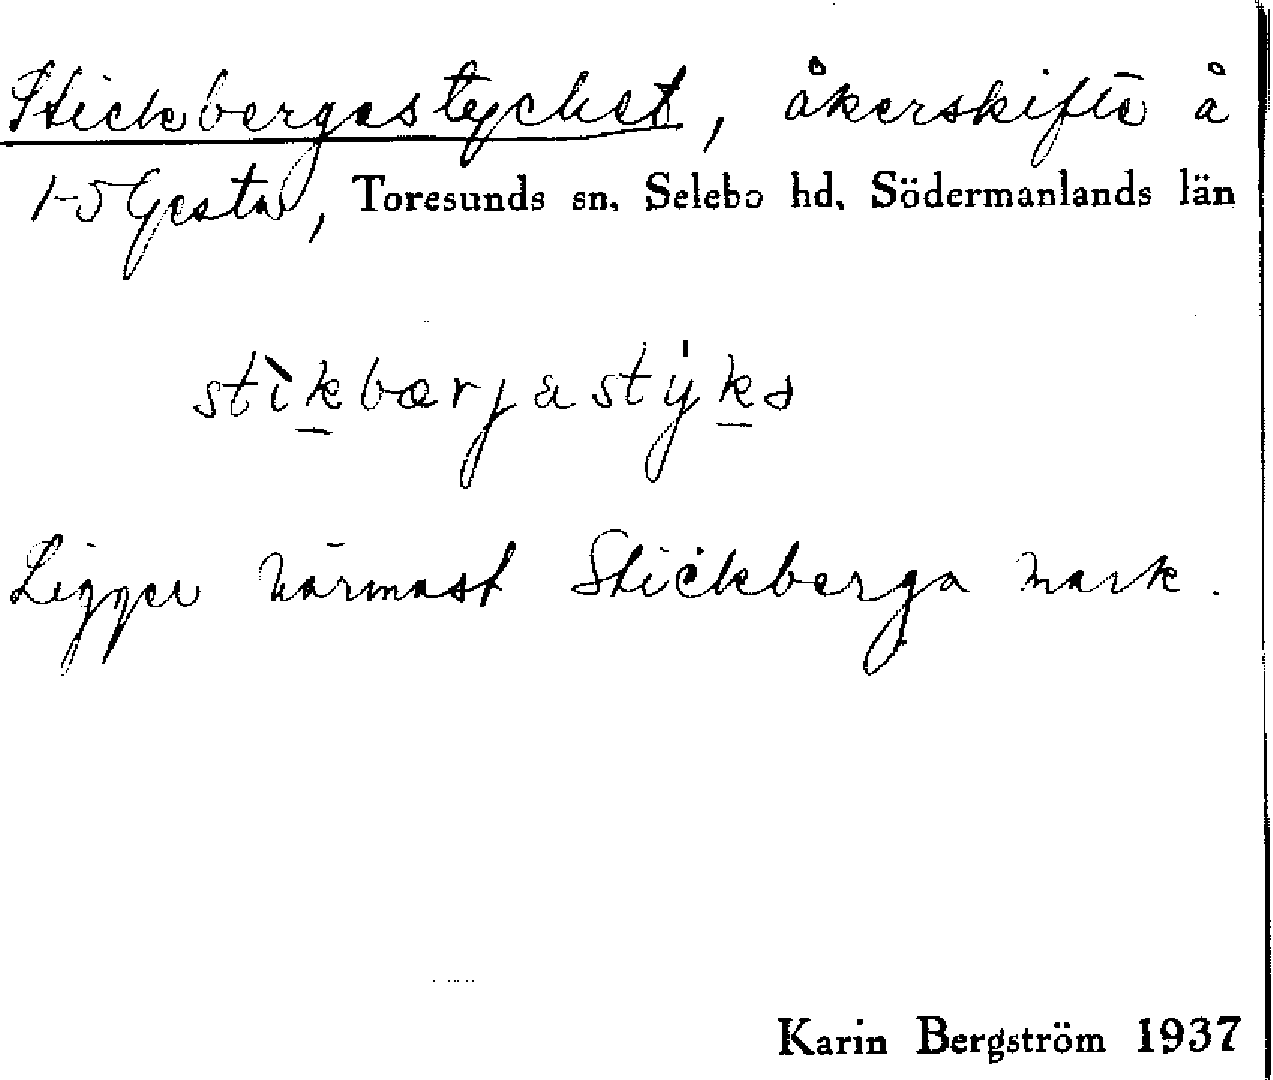 Stickbergastycket, åkerskifte å
1-5 Gesta, Toresunds sn. Selebo hd. Södermanlands län
stìkbærjastýkə
Ligger närmast Stickberga mark.
Karin Bergström 1937